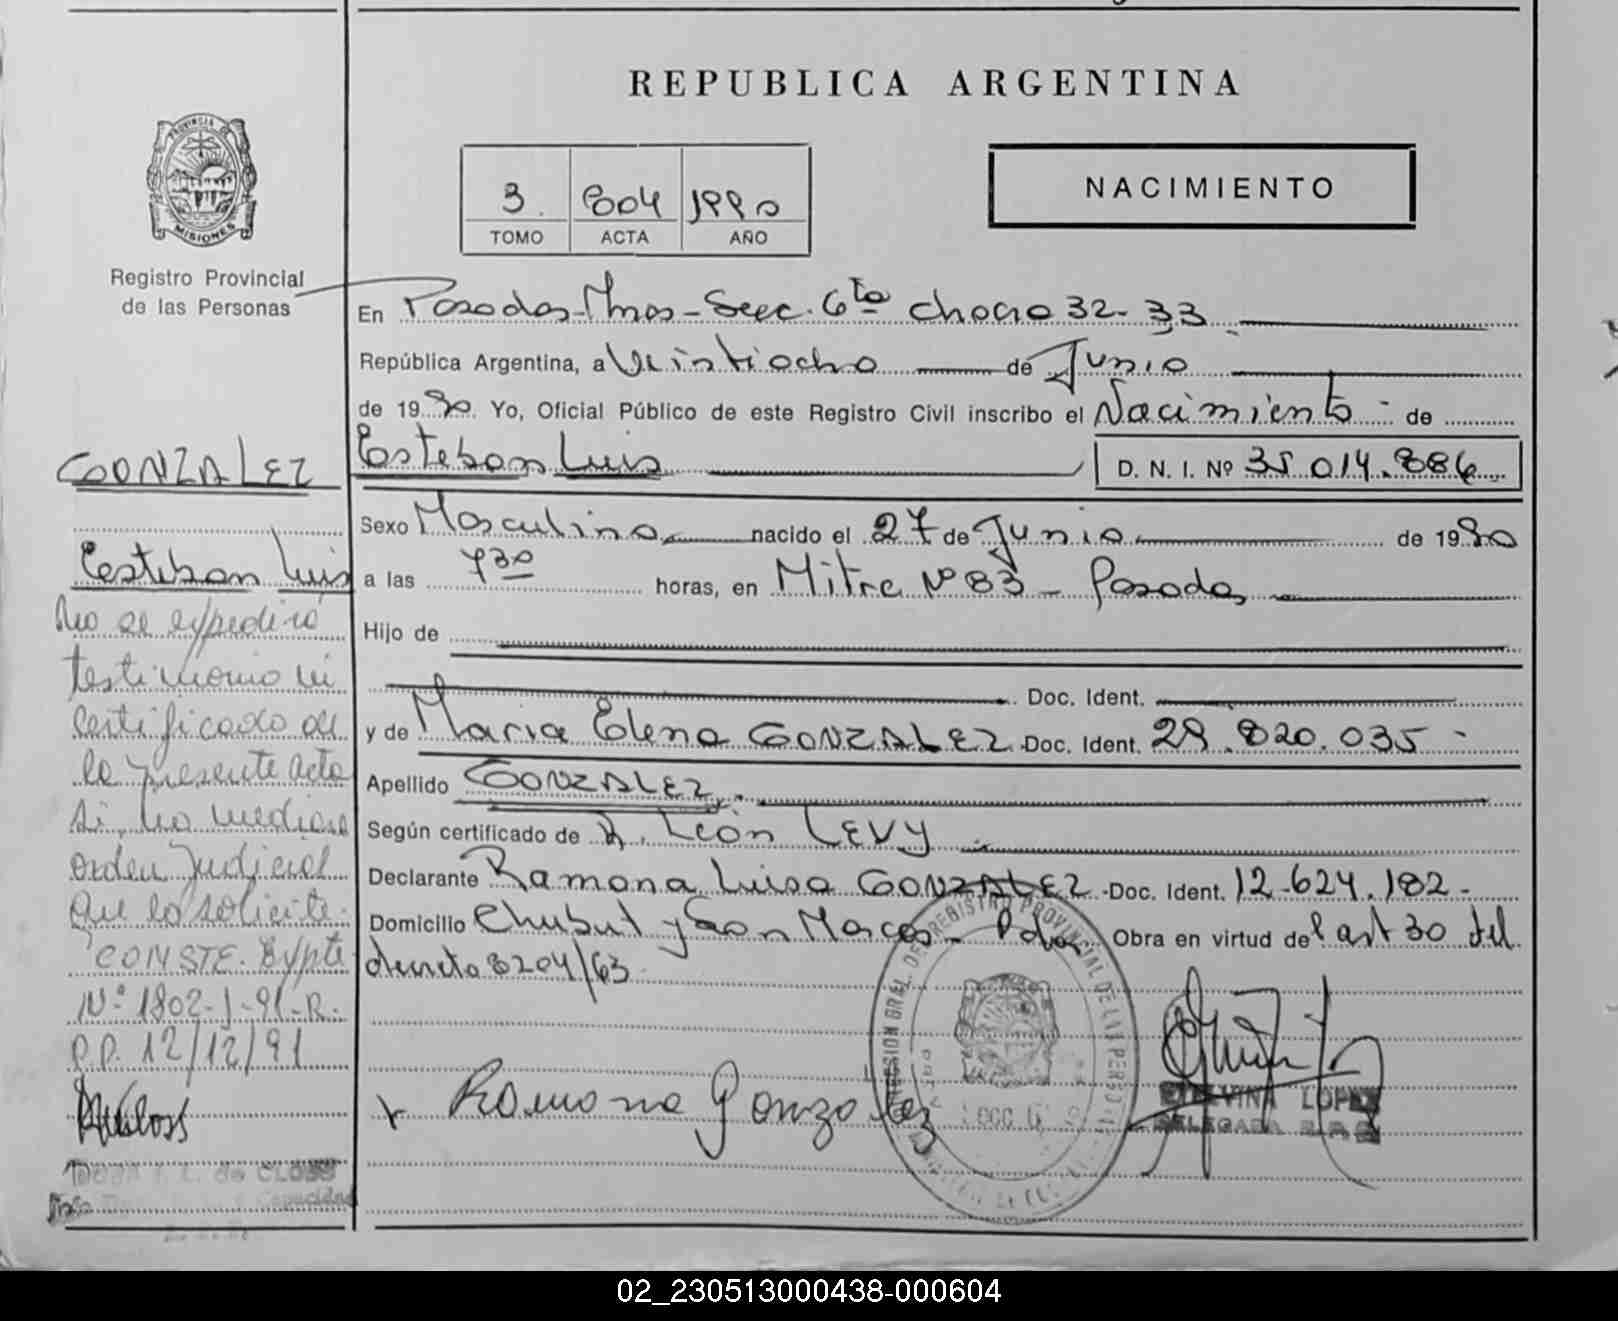 REPUBLICA ARGENTINA
PROVINCIA DE
MISIONES
Registro Provincial
de las Personas
3 604 1990
TOMO ACTA AÑO
NACIMIENTO
En Posadas-Mnes-Secc. 6ta Chacra 32-33
República Argentina, a Veintiocho de Junio
de 1990. Yo, Oficial Público de este Registro Civil inscribo el Nacimiento - de
Esteban Luis D. N. I. Nº 35.014.886
Sexo Masculino nacido el 27 de Junio de 1990
a las 730 horas, en Mitre Nº 83 - Posadas
Hijo de
Doc. Ident.
y de Maria Elena GONZALEZ Doc. Ident. 29.820.035 -
Apellido GONZALEZ.
Según certificado de D. León LEVY
Declarante Ramona Luisa GONZALEZ - Doc. Ident. 12.624.182 -
Domicilio Chubut y San Marcos - Pdas Obra en virtud del art 30 del
decreto 8204/63
Ramona Gonzalez
LOPEZ
DELEGADA
GONZALEZ
Esteban Luis
No se expedirá
testimonio ni
certificado de
la presente acta
si no mediare
orden judicial
que lo solicite.
CONSTE. Expte
Nº 1802-J-91-R.
P.P. 12/12/91
de CLOSS
Capacidad
02_230513000438-000604